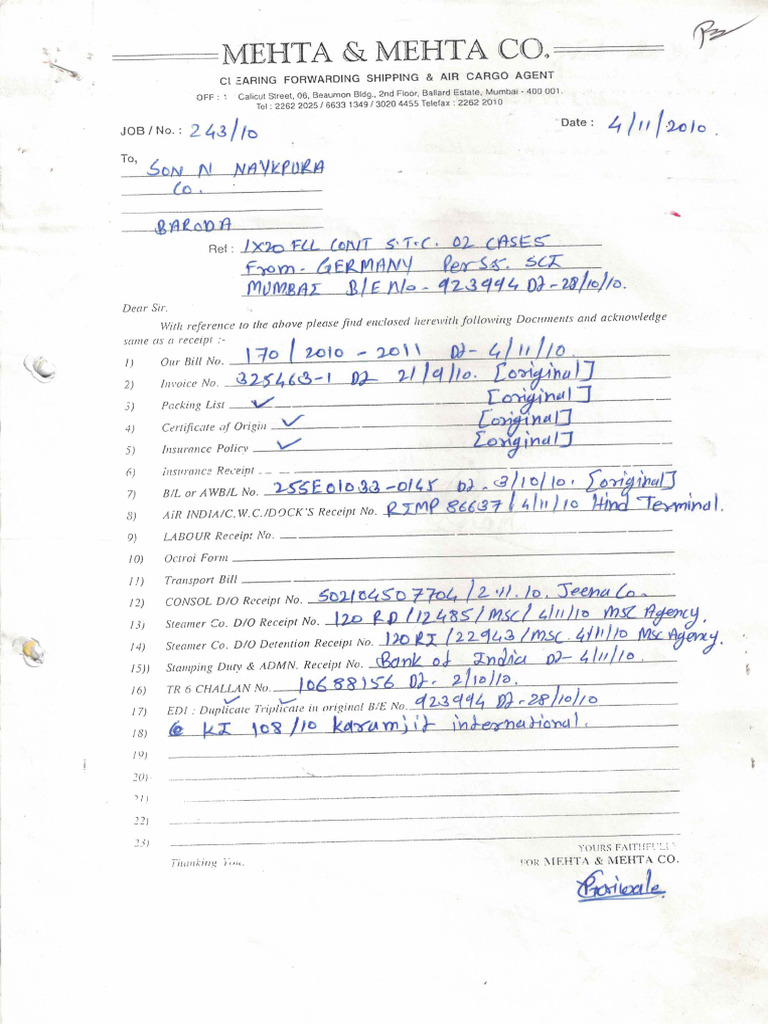 MEHTA & MEHTA CO.
CLEARING FORWARDING SHIPPING & AIR CARGO AGENT
OFF : 1 Calicut Street, 06, Beaumon Bldg., 2nd Floor, Ballard Estate, Mumbai - 400 001.
Tel : 2262 2025 / 6633 1349 / 3020 4455 Telefax : 2262 2010
JOB / No. : 243/10 Date : 4/11/2010.
To,
SON N NAYKPURA
Co.
BARODA
Ref : 1X20 FCL CONT S.T.C. 02 CASES
From - GERMANY Per SS. SCI
MUMBAI B/E No - 923994 D2 - 28/10/10.
Dear Sir.
With reference to the above please find enclosed herewith following Documents and acknowledge
same as a receipt :-
1) Our Bill No. 170 / 2010 - 2011 D2 - 4/11/10.
2) Invoice No. 325463-1 D2 21/9/10. [original]
3) Packing List ✓ [original]
4) Certificate of Origin ✓ [original]
5) Insurance Policy ✓ [original]
6) insurance Receipt
7) B/L or AWB/L No. 255E01033-0145 D2. 3/10/10. [original]
8) AiR INDIA/C.W.C./DOCK'S Receipt No. RIMP 86637 / 4/11/10 Hind Terminal.
9) LABOUR Receipt No.
10) Octroi Form
11) Transport Bill
12) CONSOL D/O Receipt No. 502104507704 / 2.11.10. Jeena Co.
13) Steamer Co. D/O Receipt No. 120 RD/12485/MSC/ 4/11/10 MSC Agency.
14) Steamer Co. D/O Detention Receipt No. 120RI/22943/MSC. 4/11/10 MSC Agency.
15)) Stamping Duty & ADMN. Receipt No. Bank of India D2- 4/11/10.
16) TR 6 CHALLAN No. 10688156 D2. 2/10/10.
17) EDI : Duplicate Triplicate in original B/E No. 923994 D2-28/10/10
18) KI 108/10 Karamjit international.
19)
20)
21)
22)
23)
Thanking You.
YOURS FAITHFULLY
FOR MEHTA & MEHTA CO.